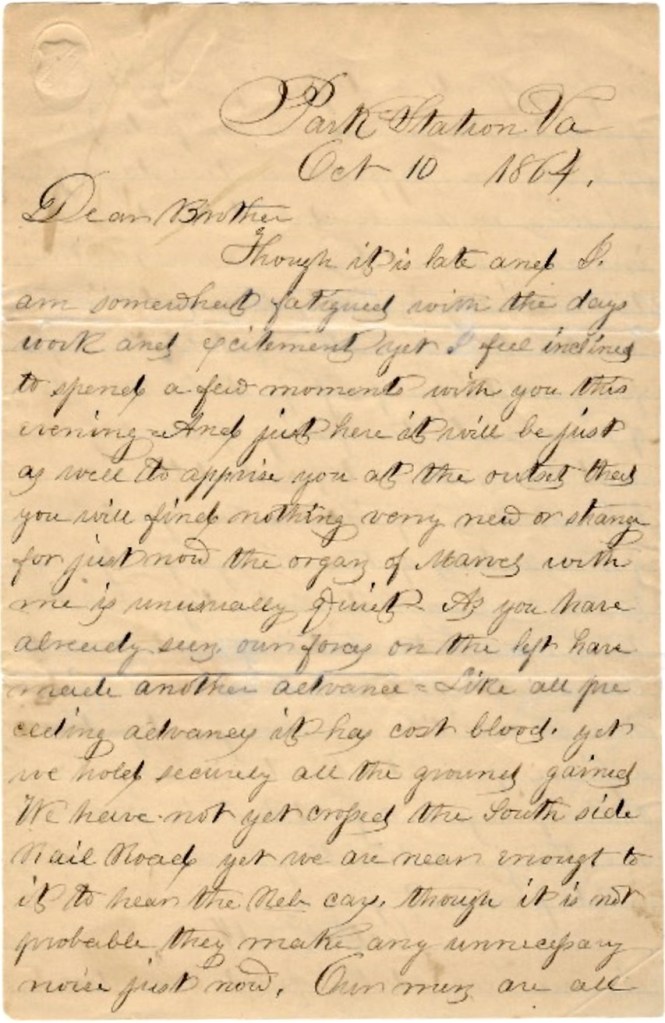 Park Station Va
Oct 10 1864.
Dear Brother
Though it is late and I.
am somewhat fatigued with the days
work and excitement yet I feel inclined
to spend a few moments with you this
evening - And just here it will be just
as well to apprise you at the outset that
you will find nothing verry new or strange
for just now the organ of Marvel with
me is unusually quiet - As you have
already seen. our forces on the left have
made another advance - Like all pre
ceeding advances it has cost blood. yet
we hold securely all the ground gained
We have not yet crossed the South side
Rail Road yet we are near enough to
it to hear the Reb cars. though it is not
probable they make any unnecessary
noise just now. Our men are all